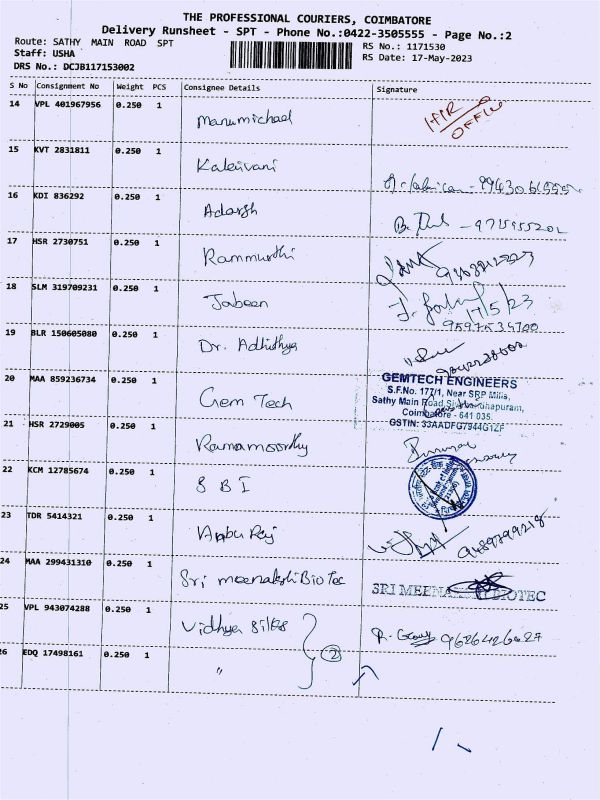 THE PROFESSIONAL COURIERS, COIMBATORE
Delivery Runsheet - SPT - Phone No.:0422-3505555 - Page No.:2
Route: SATHY MAIN ROAD SPT
RS No.: 1171530
Staff: USHA
RS Date: 17-May-2023
DRS No.: DCJB117153002
S No Consignment No Weight PCS Consignee Details Signature
14 VPL 401967956 0.250 1 Manumichael
OFFICE
15 KVT 2831811 0.250 1 Kaleivani
16 KDI 836292 0.250 1 Adarsh
17 HSR 2730751 0.250 1 Rammurthi
18 SLM 319709231 0.250 1 Jabeen
17/5/23
19 BLR 150605080 0.250 1 Dr. Adhithya
20 MAA 859236734 0.250 1 Gem Tech
GEMTECH ENGINEERS
S.F.No. 177/1, Near SRP Mills,
Sathy Main Road,
Coimbatore - 641 035.
GSTIN: 33AADFG7944G1ZF
21 HSR 2729005 0.250 1 Ramamoorthy
22 KCM 12785674 0.250 1 S B I
23 TDR 5414321 0.250 1 Anbu Raj
9489799218
24 MAA 299431310 0.250 1 Sri meenakshi Bio Tec
SRI MEENA BIOTEC
25 VPL 943074288 0.250 1 Vidhya Silks
9626426627
26 EDQ 17498161 0.250 1 "
2